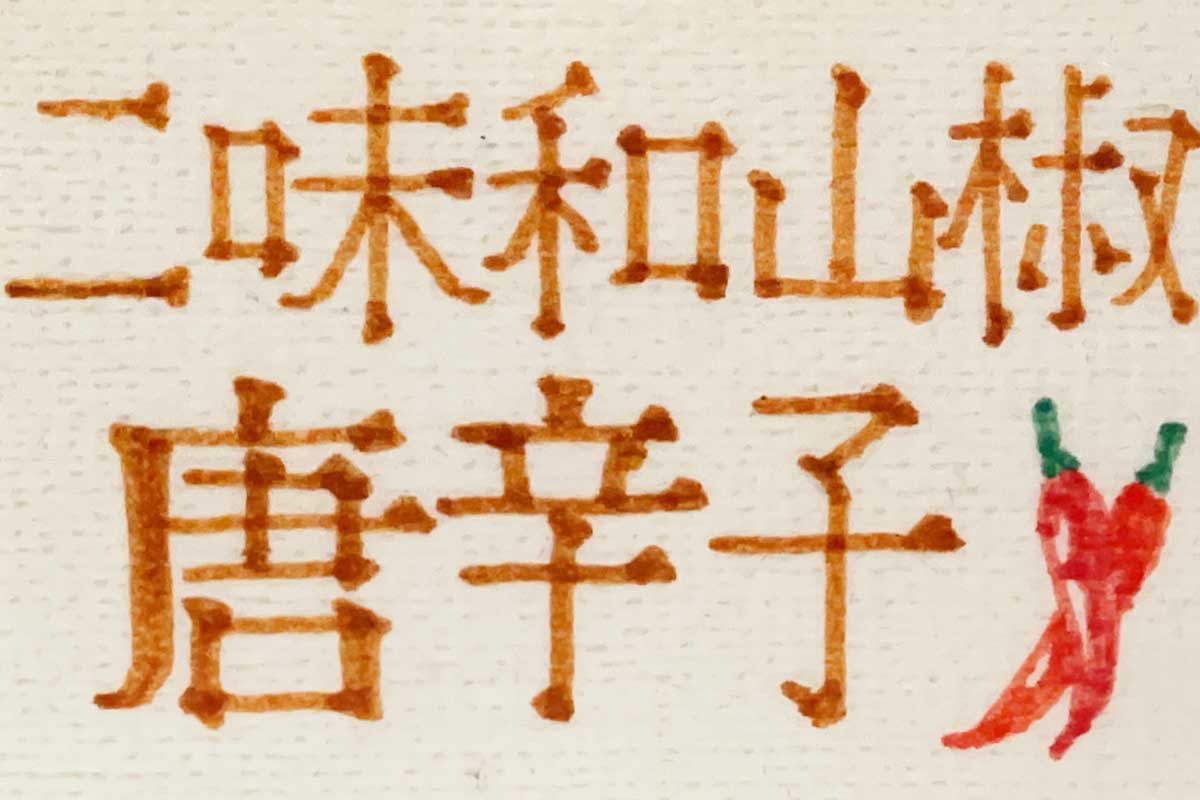 二味和山椒
唐辛子